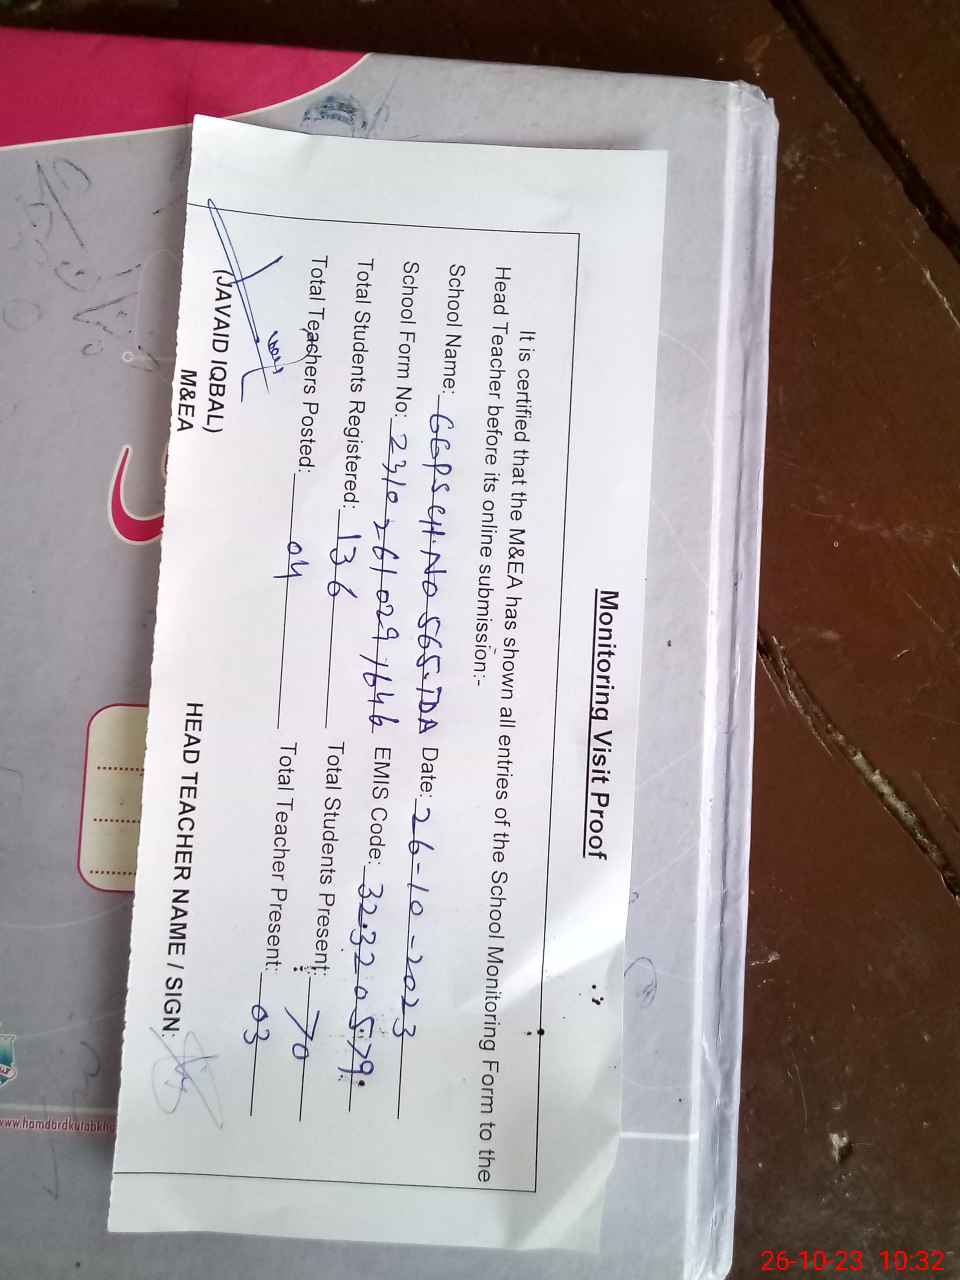 Monitoring Visit Proof
It is certified that the M&EA has shown all entries of the School Monitoring Form to the
Head Teacher before its online submission:-
School Name: GGPS CH. NO 565. TDA Date: 26-10-2023
School Form No: 2310261029 1646 EMIS Code: 32320579
Total Students Registered: 136 Total Students Present: 70
Total Teachers Posted: 04 Total Teacher Present: 03
(JAVAID IQBAL)
M&EA
HEAD TEACHER NAME / SIGN:
26-10-23 10:32